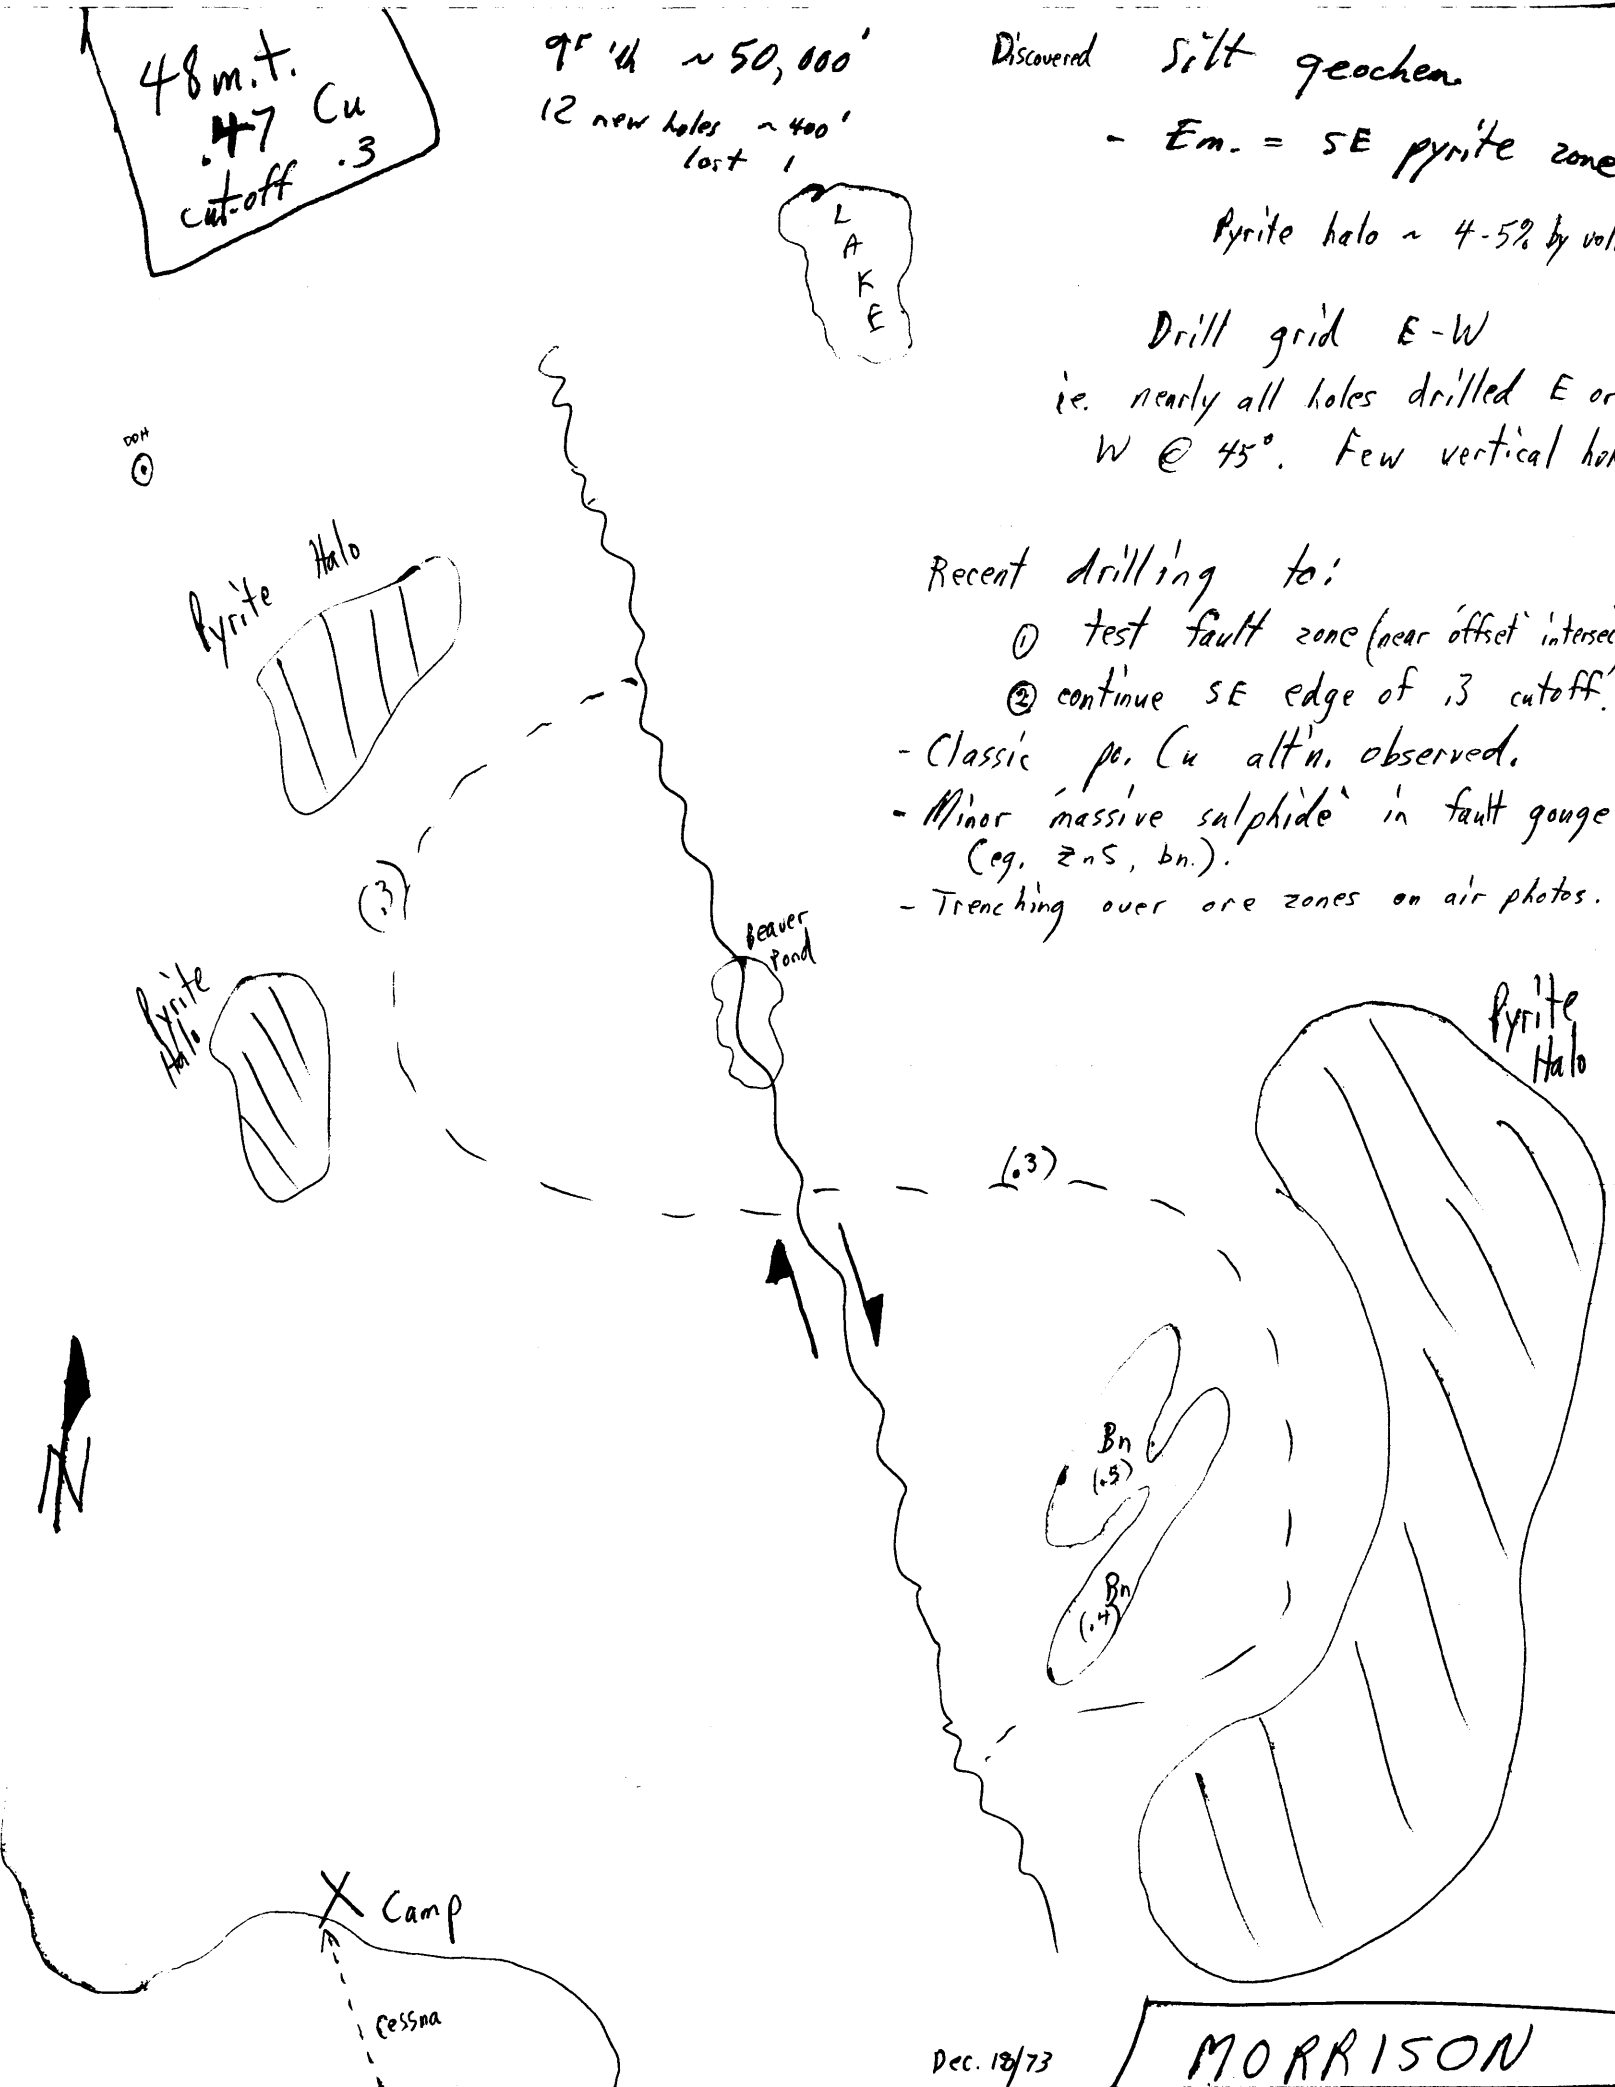 48 m.t.
.47 Cu
cut-off .3
~ 50,000'
12 new holes ~ 400'
lost 1
Discovered Silt geochem.
- Em. = SE pyrite zone
Pyrite halo ~ 4-5% by vol
LAKE
Drill grid E-W
ie. nearly all holes drilled E or
W @ 45°. Few vertical
DDH
Pyrite Halo
Recent drilling to:
① test fault zone (near "offset" intersec
② continue SE edge of .3 cutoff.
- Classic po. Cu alt'n. observed.
- Minor "massive sulphide" in fault gouge
(eg. ZnS, bn.).
- Trenching over ore zones on air photos.
(.3)
Beaver
Pond
Pyrite
Halo
Pyrite
Halo
(.3)
N
Bn
(.5)
Bn
(.4)
X Camp
Cessna
Dec. 18/73
MORRISON